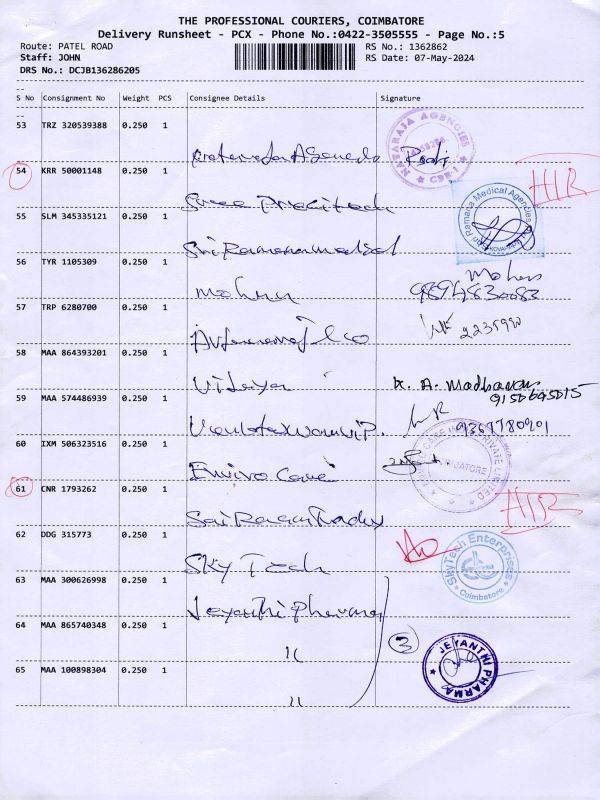 THE PROFESSIONAL COURIERS, COIMBATORE
Delivery Runsheet - PCX - Phone No.:0422-3505555 - Page No.:5
Route: PATEL ROAD
RS No.: 1362862
Staff: JOHN
RS Date: 07-May-2024
DRS No.: DCJB136286205
S No Consignment No Weight PCS Consignee Details Signature
53 TRZ 320539388 0.250 1
NATARAJA AGENCIES
CBE-1
54 KRR 50001148 0.250 1
Sree Precitech
HIR
55 SLM 345335121 0.250 1
Sri Ramana Medical
Sri Ramana Medical Agencies
56 TYR 1105309 0.250 1
Mohan
57 TRP 6280700 0.250 1
58 MAA 864393201 0.250 1
Vidaya
A. Madhavan
59 MAA 574486939 0.250 1
60 IXM 506323516 0.250 1
Enviro Care
PRIVATE LIMITED
COIMBATORE
61 CNR 1793262 0.250 1
Sri Ragav
HIR
62 DDG 315773 0.250 1
Sky Tech
SkyTech Enterprises
Coimbatore
63 MAA 300626998 0.250 1
Jeyanthi Pharma
64 MAA 865740348 0.250 1
"
3
JEYANTHI PHARMA
65 MAA 100898304 0.250 1
"